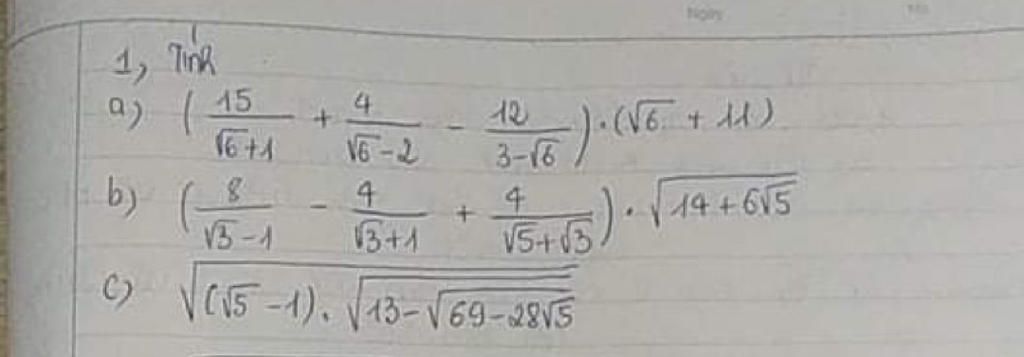 Ngày No
1, Tính
a) (15/(√6+1) + 4/(√6-2) - 12/(3-√6)) . (√6 + 11)
b) (8/(√3-1) - 4/(√3+1) + 4/(√5+√3)) . √(14+6√5)
c) √((√5-1) . √(13-√(69-28√5)))